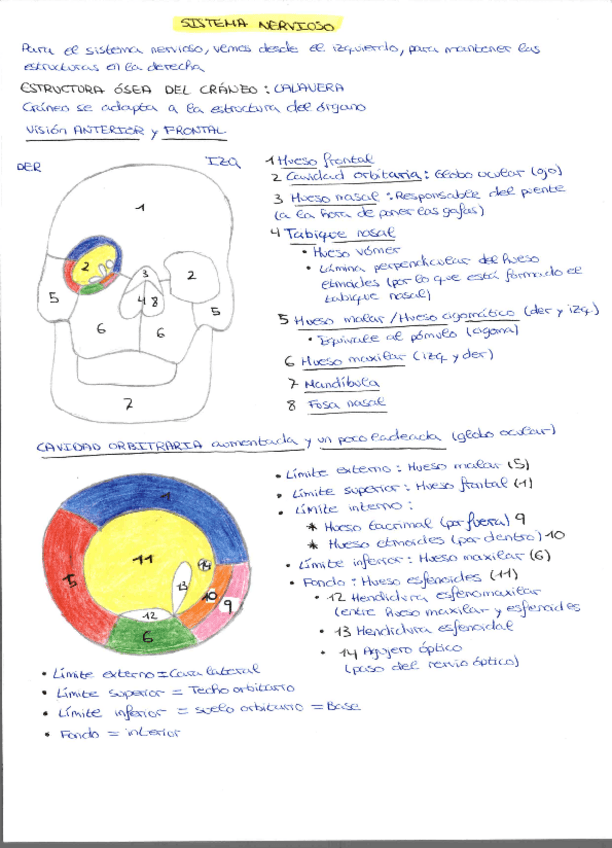 SISTEMA NERVIOSO
Para el sistema nervioso, vemos desde el izquierdo, para mantener las
estructuras en la derecha
ESTRUCTURA ÓSEA DEL CRÁNEO : CALAVERA
Cráneo se adapta a la estructura del órgano
Visión ANTERIOR y FRONTAL
DER
IZQ
1
2
3
2
4
8
5
5
6
6
7
1 Hueso frontal
2 Cavidad orbitaria : Globo ocular (ojo)
3 Hueso nasal : Responsable del puente
(a la hora de poner las gafas)
4 Tabique nasal
• Hueso vómer
• Lámina perpendicular del hueso
etmoides (por lo que está formado el
tabique nasal)
5 Hueso malar / Hueso cigomático (der y izq)
• Equivale al pómulo (cigoma)
6 Hueso maxilar (izq y der)
7 Mandíbula
8 Fosa nasal
CAVIDAD ORBITRARIA aumentada y un poco ladeada (globo ocular)
1
11
5
14
13
10
9
12
6
• Límite externo : Hueso malar (5)
• Límite superior : Hueso frontal (1)
• Límite interno :
* Hueso lacrimal (por fuera) 9
* Hueso etmoides (por dentro) 10
• Límite inferior : Hueso maxilar (6)
• Fondo : Hueso esfenoides (11)
• 12 Hendidura esfenomaxilar
(entre hueso maxilar y esfenoides
• 13 Hendidura esfenoidal
• 14 Agujero óptico
(paso del nervio óptico)
• Límite externo = Cara lateral
• Límite superior = Techo orbitario
• Límite inferior = suelo orbitario = Base
• Fondo = interior